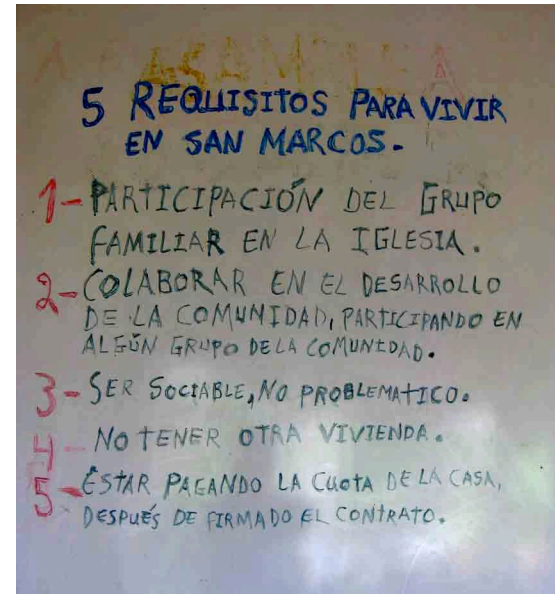 5 REQUISITOS PARA VIVIR
EN SAN MARCOS.
1- PARTICIPACIÓN DEL GRUPO
FAMILIAR EN LA IGLESIA.
2- COLABORAR EN EL DESARROLLO
DE LA COMUNIDAD, PARTICIPANDO EN
ALGÚN GRUPO DE LA COMUNIDAD.
3- SER SOCIABLE, NO PROBLEMATICO.
4- NO TENER OTRA VIVIENDA.
5- ESTAR PAGANDO LA CUOTA DE LA CASA,
DESPUÉS DE FIRMADO EL CONTRATO.